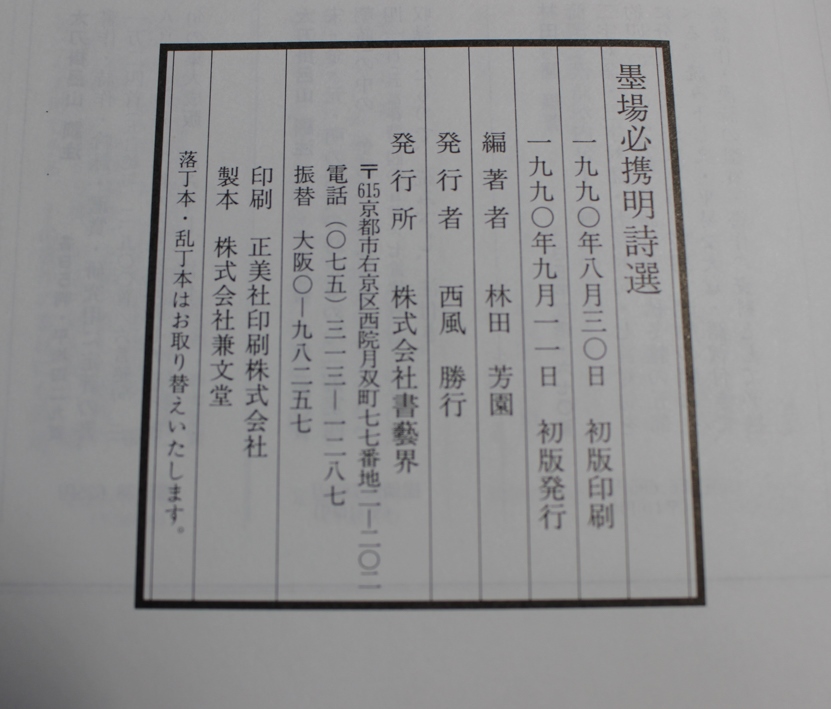 墨場必携明詩選
一九九〇年八月三〇日 初版印刷
一九九〇年九月一一日 初版発行
編著者 林田 芳園
発行者 西風 勝行
発行所 株式会社書藝界
〒615京都市右京区西院月双町七七番地二―二〇二
電話（〇七五）三一三―一二八七
振替 大阪〇―九八二五七
印刷 正美社印刷株式会社
製本 株式会社兼文堂
落丁本・乱丁本はお取り替えいたします。